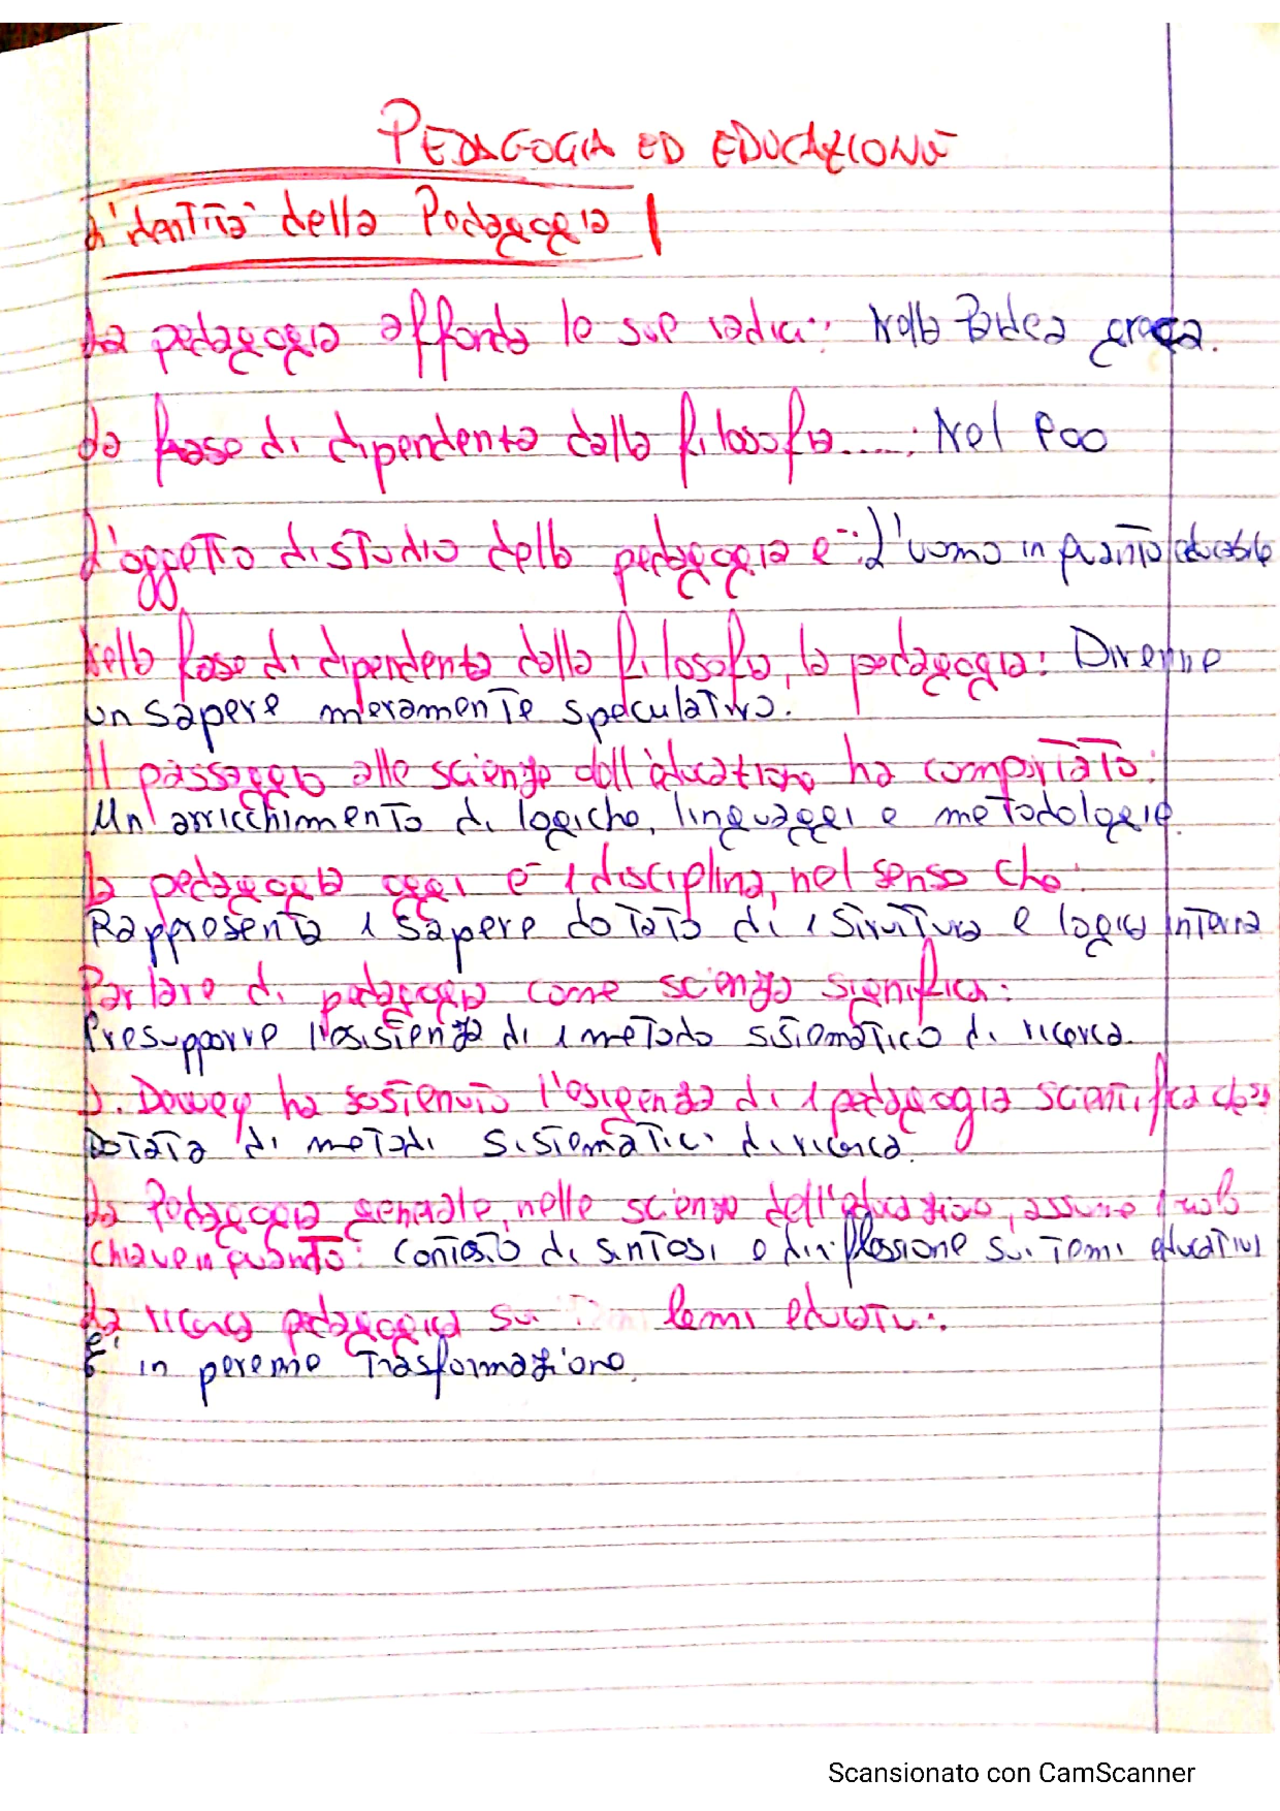 PEDAGOGIA ED EDUCAZIONE
L'identità della Pedagogia
La pedagogia affonda le sue radici: Nella Paideia greca.
La fase di dipendenta dalla filosofia.....: Nel 800
L'oggetto di studio della pedagogia è: L'uomo in quanto educabile
Nella fase di dipendenta dalla filosofia, la pedagogia: Divenne
un sapere meramente speculativo.
Il passaggio alle scienze dell'educazione ha comportato:
Un arricchimento di logiche, linguaggi e metodologie.
la pedagogia oggi è 1 disciplina, nel senso che:
Rappresenta 1 sapere dotato di 1 struttura e logica interna
Parlare di pedagogia come scienza significa:
Presupporre l'esistenza di 1 metodo sistematico di ricerca.
J. Dewey ha sostenuto l'esigenza di 1 pedagogia scientifica cioè
Dotata di metodi sistematici di ricerca.
La Pedagogia generale, nelle scienze dell'educazione, assume 1 ruolo
chiave in quanto: contesto di sintesi e di riflessione sui temi educativi
La ricerca pedagogica sui temi educativi:
E' in perenne trasformazione.
Scansionato con CamScanner